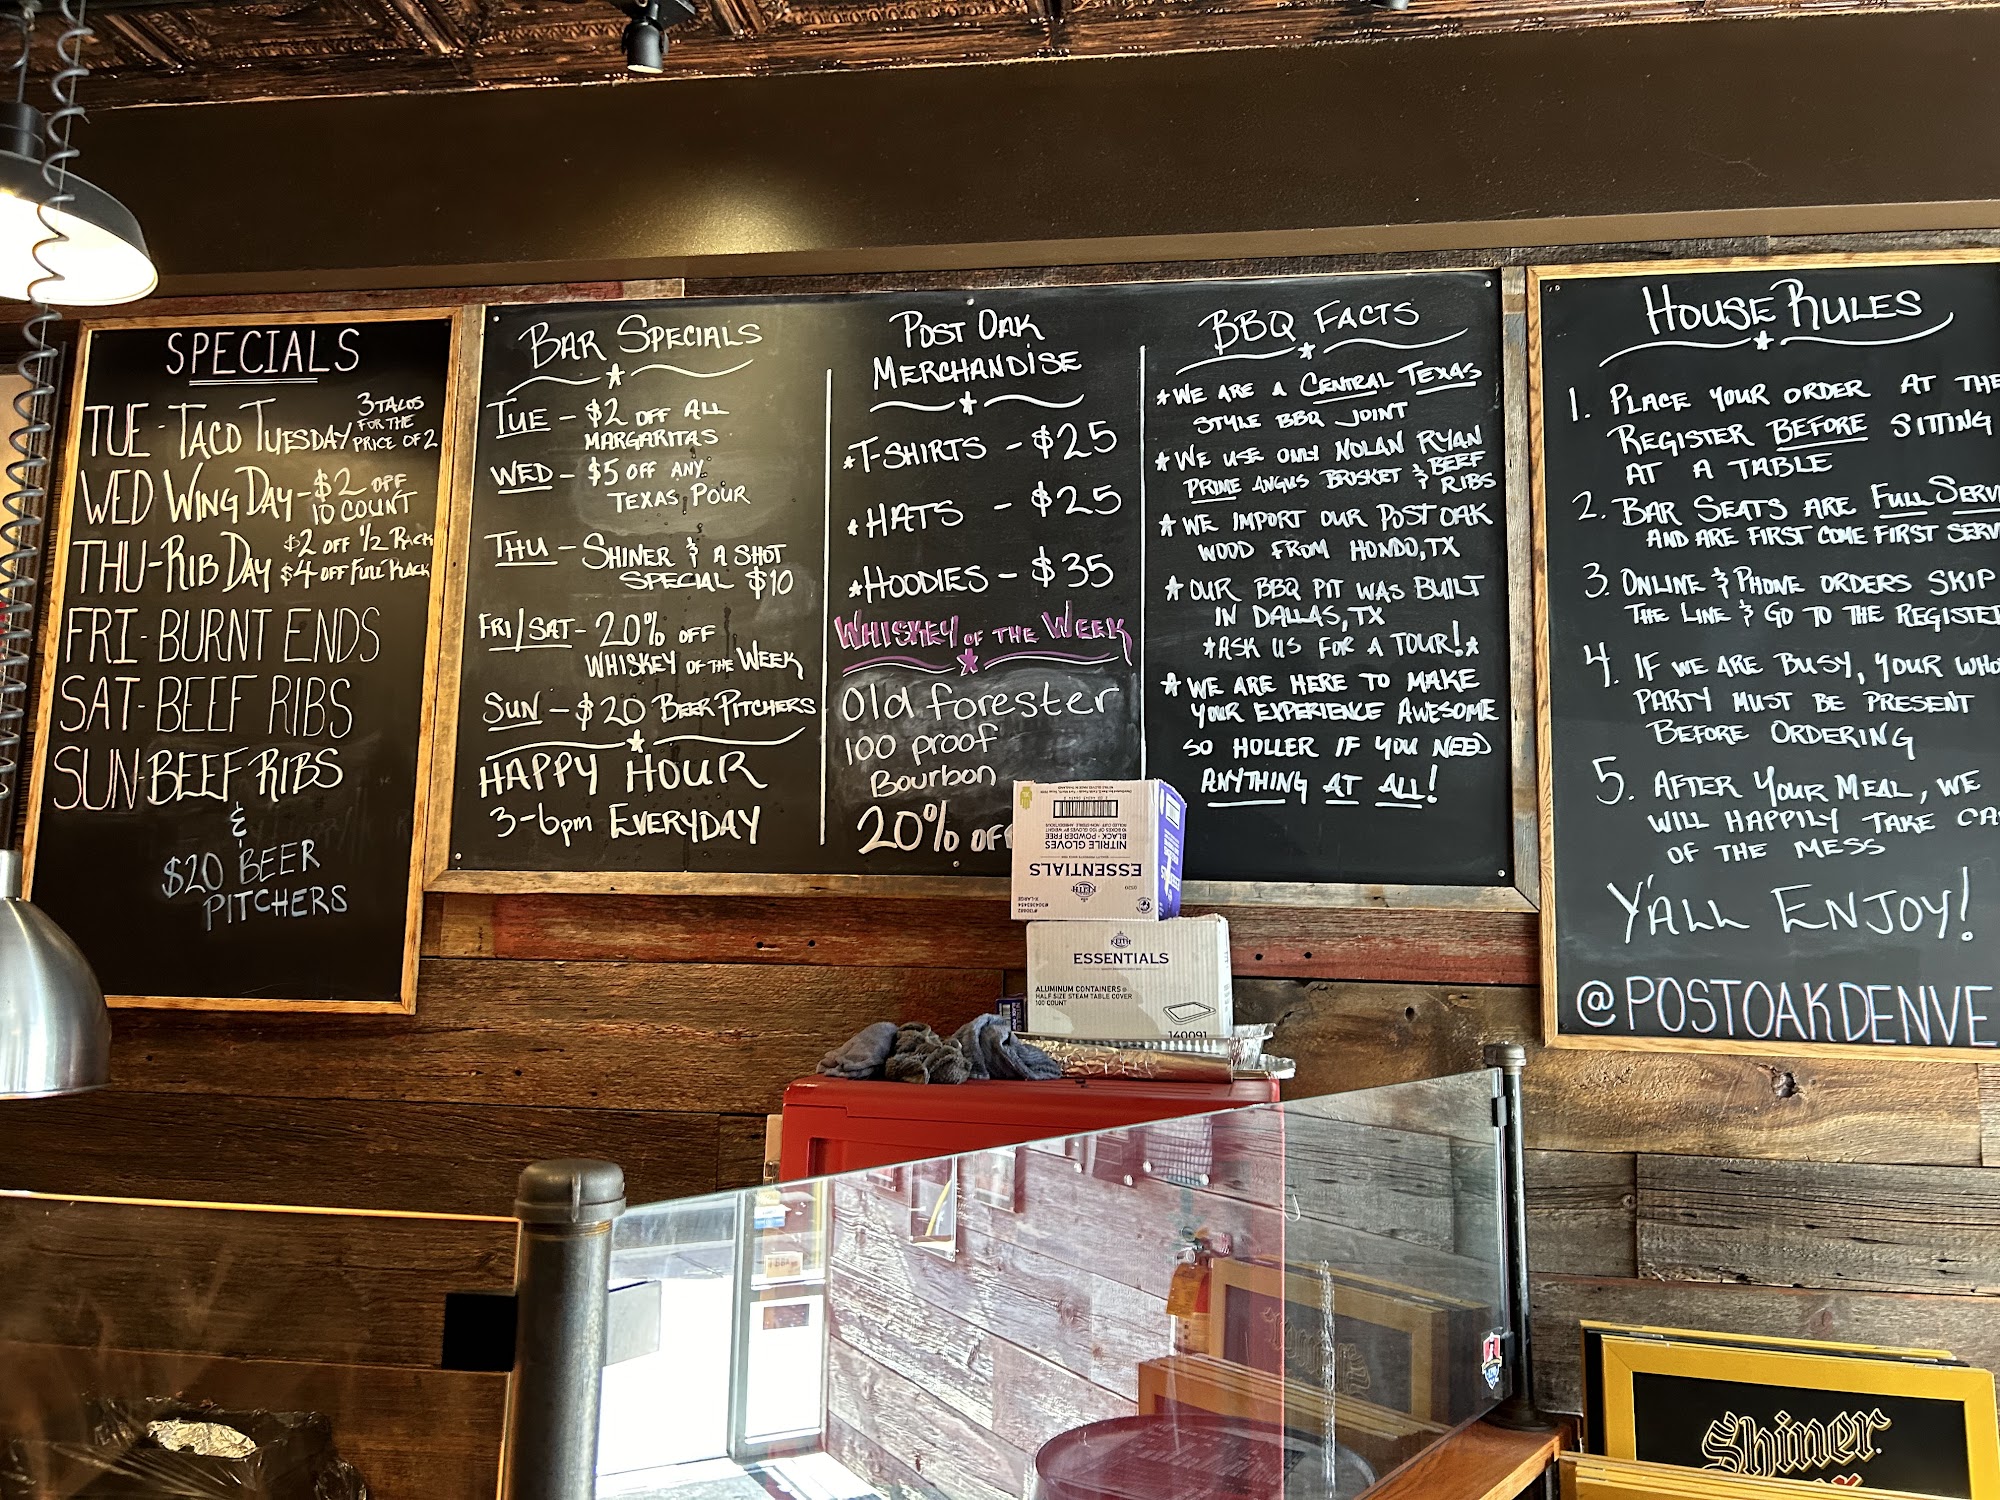 SPECIALS
TUE - TACO TUESDAY 3 TACOS
FOR THE
PRICE OF 2
WED WING DAY - $2 OFF
10 COUNT
THU - RIB DAY $2 OFF 1/2 RACK
$4 OFF FULL RACK
FRI - BURNT ENDS
SAT - BEEF RIBS
SUN - BEEF RIBS
&
$20 BEER
PITCHERS
BAR SPECIALS
TUE - $2 OFF ALL
MARGARITAS
WED - $5 OFF ANY
TEXAS POUR
THU - SHINER & A SHOT
SPECIAL $10
FRI/SAT - 20% OFF
WHISKEY OF THE WEEK
SUN - $20 BEER PITCHERS
HAPPY HOUR
3-6pm EVERYDAY
POST OAK
MERCHANDISE
T-SHIRTS - $25
HATS - $25
HOODIES - $35
WHISKEY OF THE WEEK
Old forester
100 proof
Bourbon
20% OFF
BBQ FACTS
WE ARE A CENTRAL TEXAS
STYLE BBQ JOINT
WE USE ONLY NOLAN RYAN
PRIME ANGUS BRISKET & BEEF
RIBS
WE IMPORT OUR POST OAK
WOOD FROM HONDO, TX
OUR BBQ PIT WAS BUILT
IN DALLAS, TX
ASK US FOR A TOUR!
WE ARE HERE TO MAKE
YOUR EXPERIENCE AWESOME
SO HOLLER IF YOU NEED
ANYTHING AT ALL!
HOUSE RULES
1. PLACE YOUR ORDER AT THE
REGISTER BEFORE SITTING
AT A TABLE
2. BAR SEATS ARE FULL SERV
AND ARE FIRST COME FIRST SERV
3. ONLINE & PHONE ORDERS SKIP
THE LINE & GO TO THE REGISTER
4. IF WE ARE BUSY, YOUR WHO
PARTY MUST BE PRESENT
BEFORE ORDERING
5. AFTER YOUR MEAL, WE
WILL HAPPILY TAKE CA
OF THE MESS
Y'ALL ENJOY!
@POSTOAKDENVE
ESSENTIALS
NITRILE GLOVES
BLACK • POWDER FREE
X-LARGE
KEITH
ESSENTIALS
ALUMINUM CONTAINERS
HALF SIZE STEAM TABLE COVER
100 COUNT
140091
Shiner